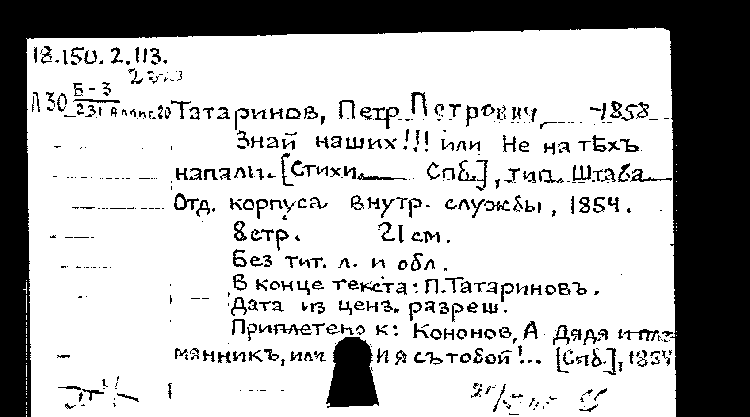 18.150.2.113.
Л30 Б-3
231
Татаринов, Петр Петрович, -1858
Знай наших!!! или Не на тѣхъ
напали. [Стихи. Спб.], тип. Штаба
Отд. корпуса внутр. службы, 1854.
8 стр. 21 см.
Без тит. л. и обл.
В конце текста: П. Татариновъ.
Дата из ценз. разреш.
Приплетено к: Кононов, А. Дядя и пле-
манникъ, или И я съ тобой!... [Спб.], 1854